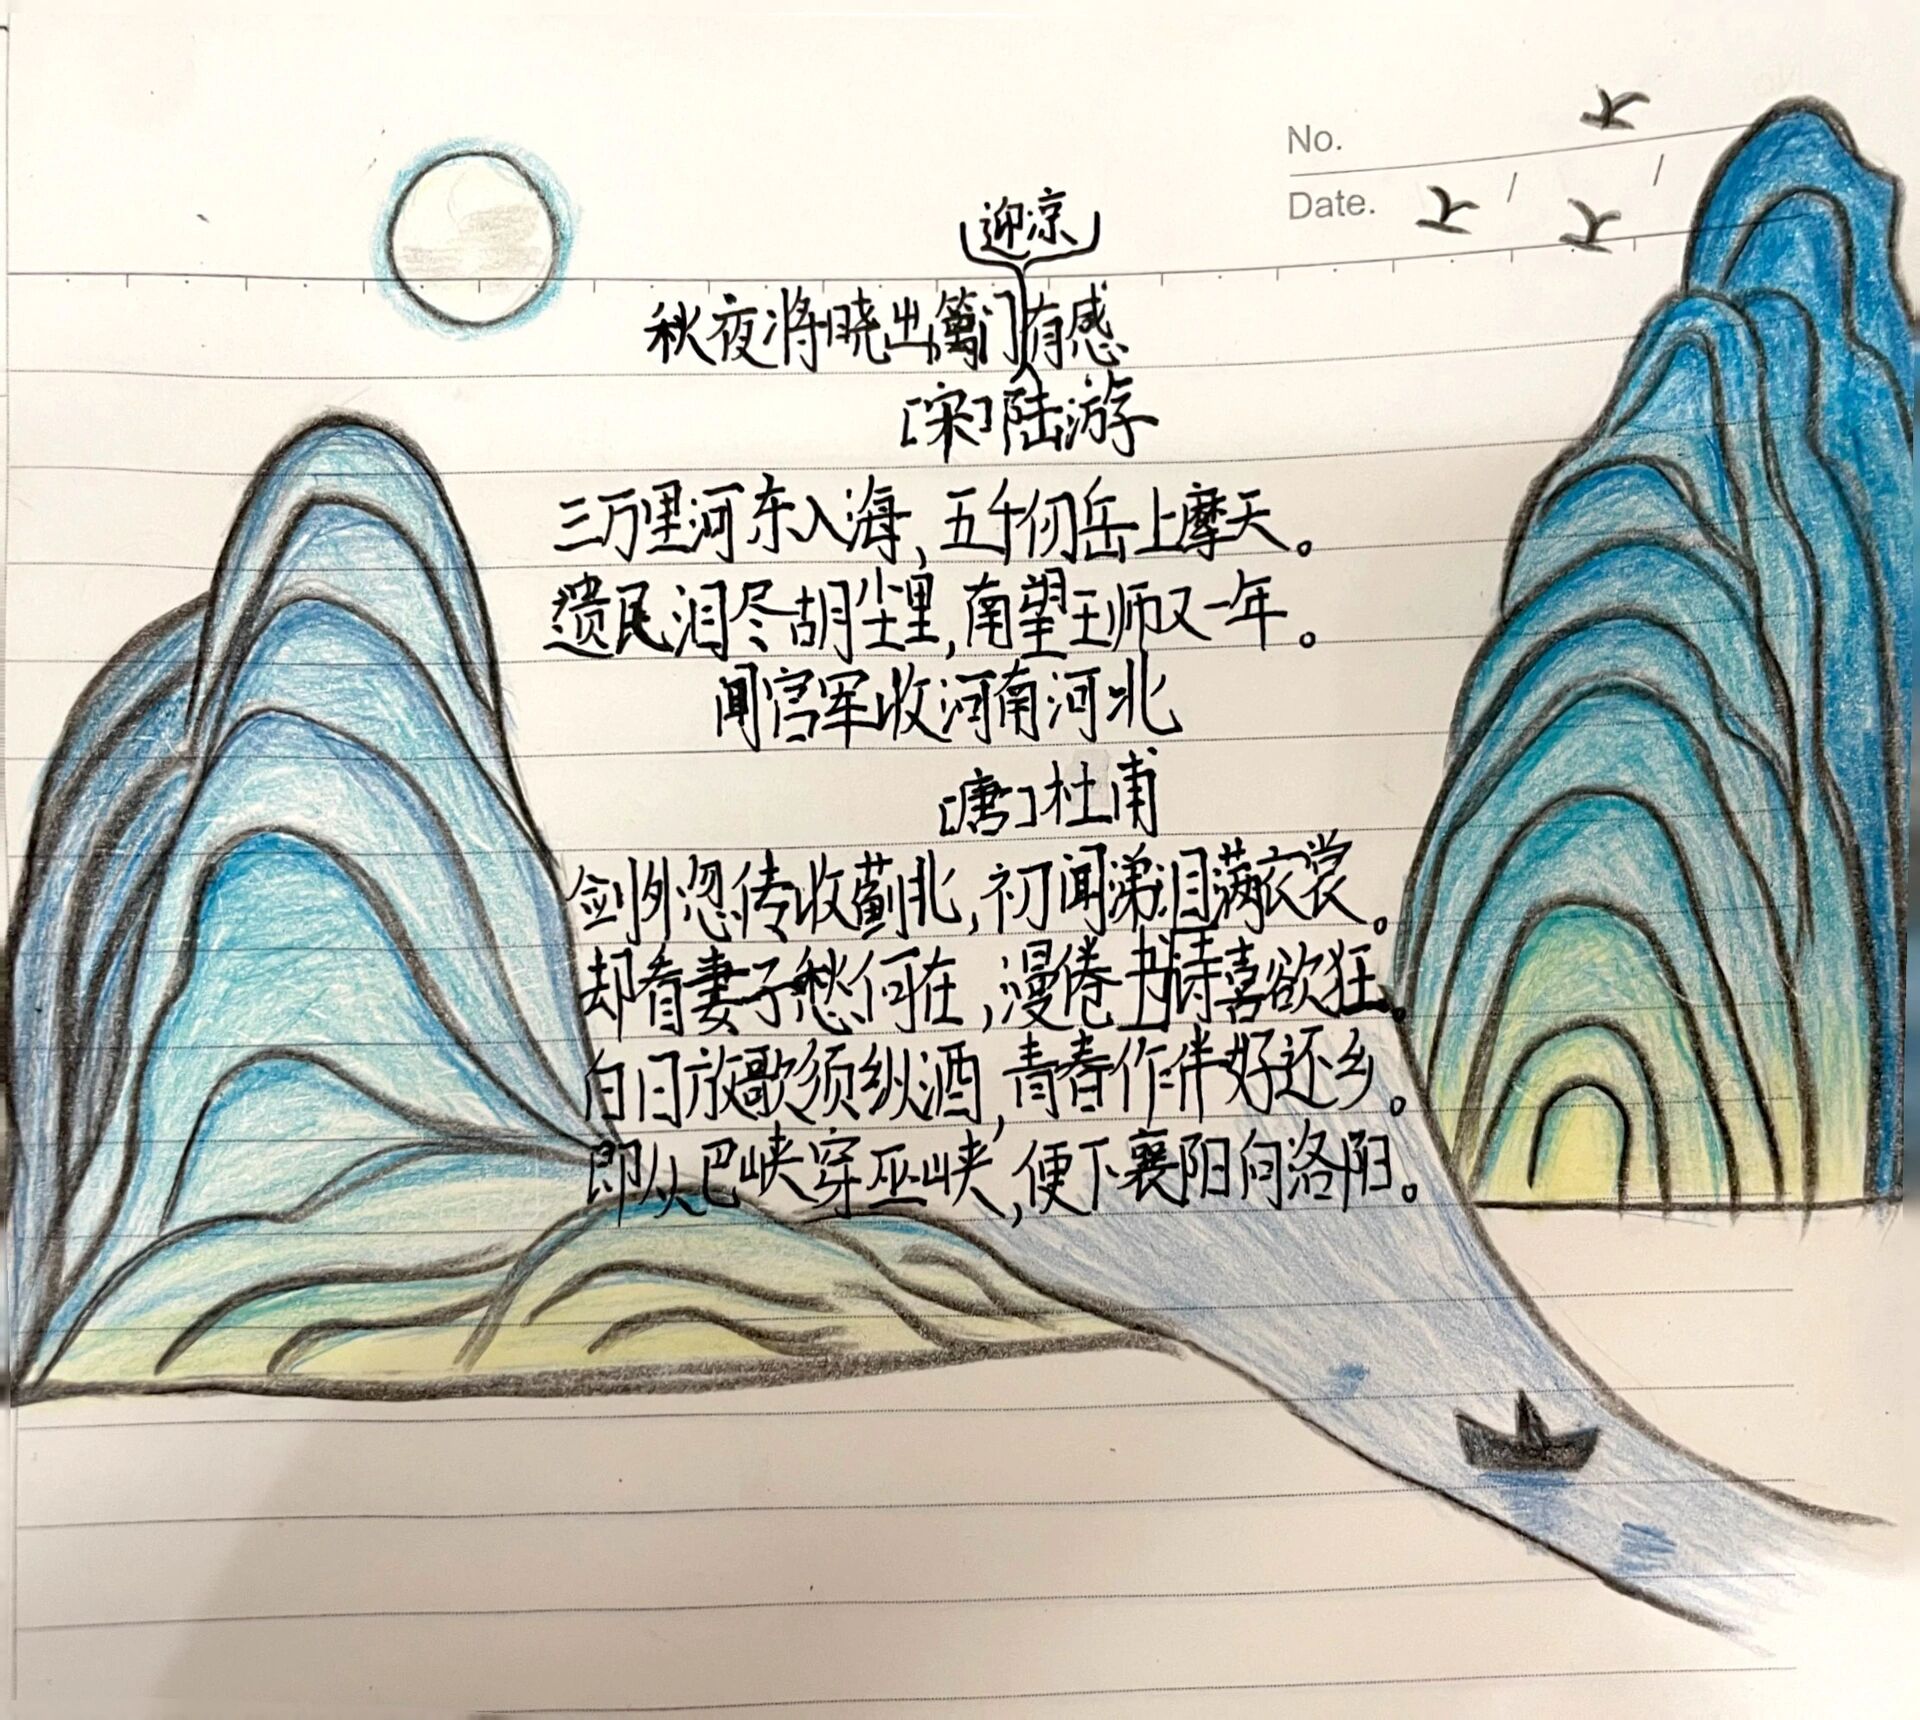 No.
Date. / /
迎凉
秋夜将晓出篱门有感
[宋]陆游
三万里河东入海,五千仞岳上摩天。
遗民泪尽胡尘里,南望王师又一年。
闻官军收河南河北
[唐]杜甫
剑外忽传收蓟北,初闻涕泪满衣裳。
却看妻子愁何在,漫卷书诗喜欲狂。
白日放歌须纵酒,青春作伴好还乡。
即从巴峡穿巫峡,便下襄阳向洛阳。